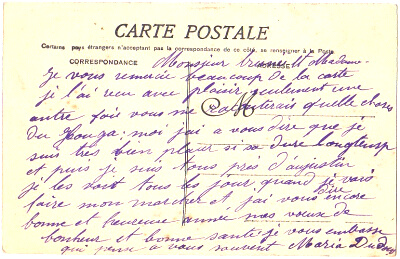 CARTE POSTALE
Certains pays étrangers n'acceptant pas la correspondance de ce côté, se renseigner à la Poste
CORRESPONDANCE
Monsieur et Madame
je vous remercie beaucoup de la carte
je l'ai reçu avec plaisir seulement une
autre fois vous me quelle choses
Du Houga; moi j'ai a vous dire que je
suis tres bien plaise si sa dure longtemp
et puis je suis tous près d'augustin
je les voit tous les jour quand je vais
faire mon marcher et j'ai vous encore Dire
bonne et heureuse année mes voeux de
bonheur et bonne santé je vous embrasse
qui pense a vous souvent Maria